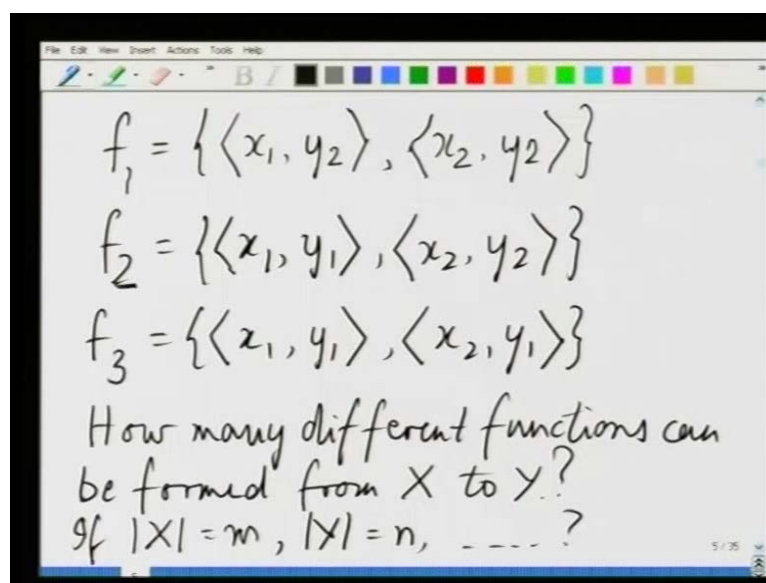 File Edit View Insert Actions Tools Help
B I
f₁ = {⟨x₁, y₂⟩, ⟨x₂, y₂⟩}
f₂ = {⟨x₁, y₁⟩, ⟨x₂, y₂⟩}
f₃ = {⟨x₁, y₁⟩, ⟨x₂, y₁⟩}
How many different functions can
be formed from X to Y?
If |X| = m, |Y| = n, ----?
5/35